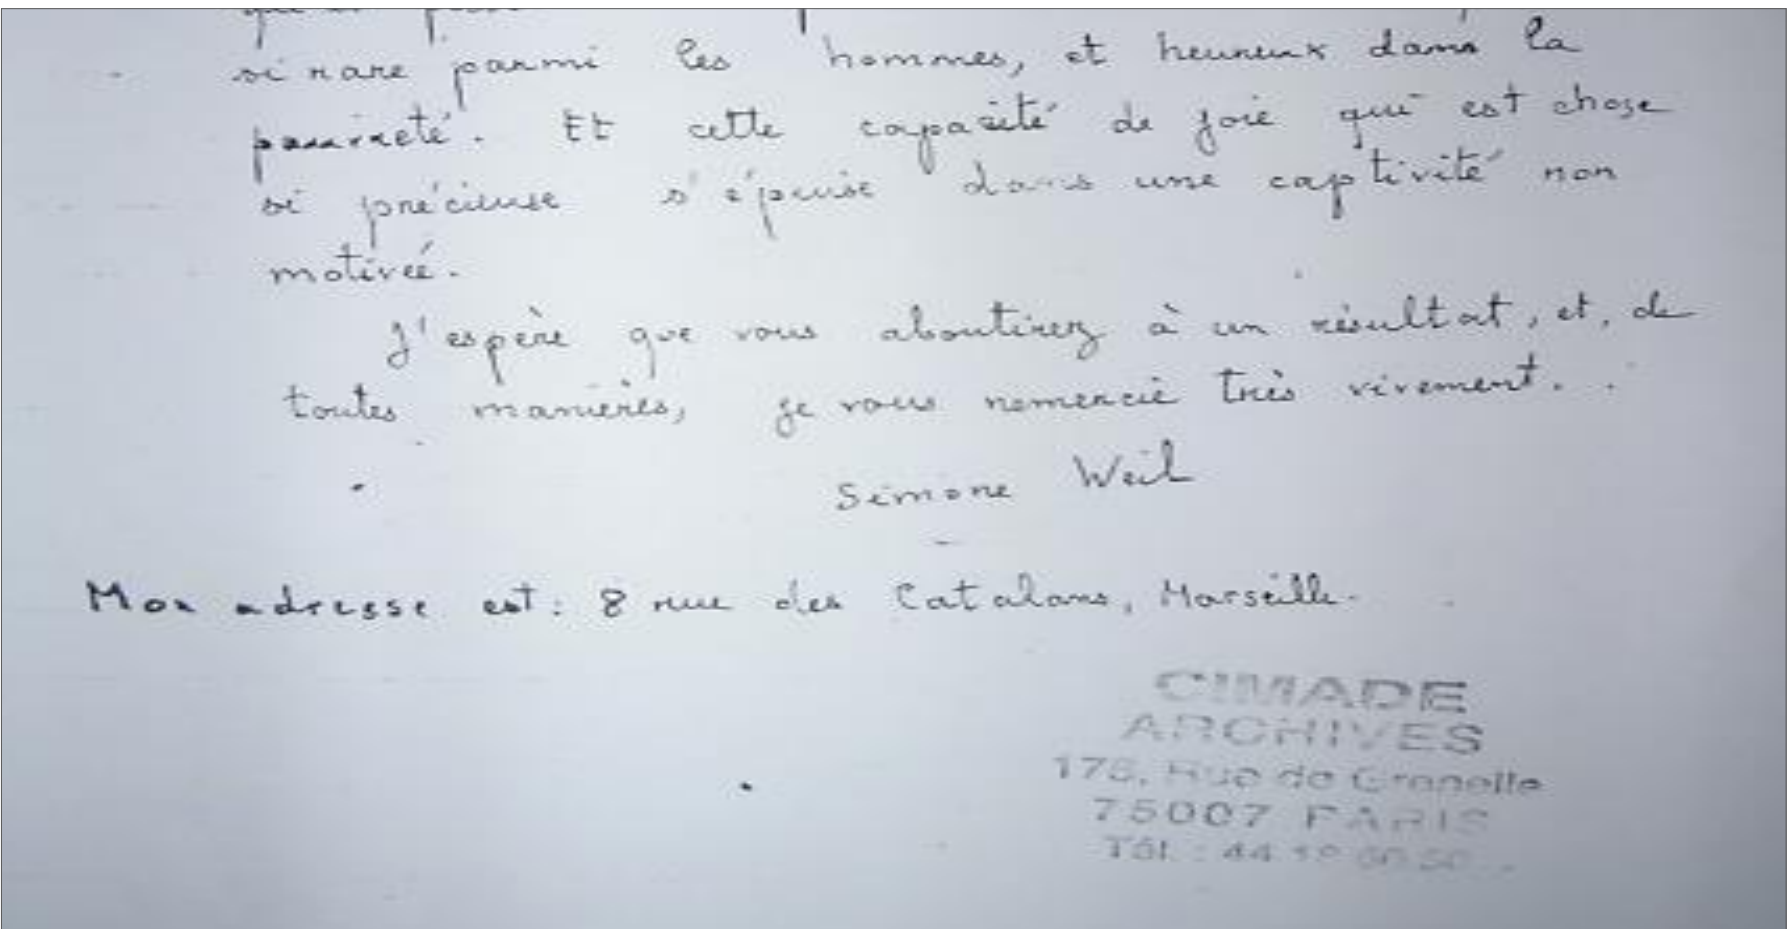 si rare parmi les hommes, et heureux dans la
pauvreté. Et cette capacité de joie qui est chose
si précieuse s'épuise dans une captivité non
motivée.
J'espère que vous aboutirez à un résultat, et, de
toutes manières, je vous remercie très vivement.
Simone Weil
Mon adresse est : 8 rue des Catalans, Marseille.
CIMADE
ARCHIVES
Rue de Grenelle
75007 PARIS
Tél. : 44